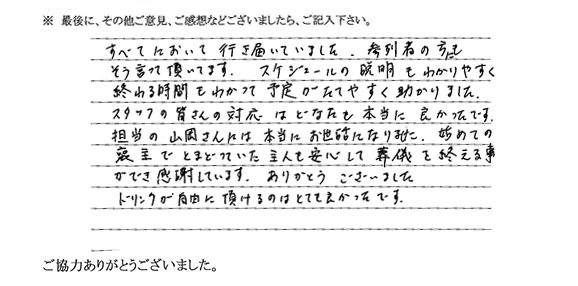 ※ 最後に、その他ご意見、ご感想などございましたら、ご記入下さい。
すべてにおいて 行き届いていました。参列者の方にも
そう言って頂いてます。 スケジュールの説明もわかりやすく
終わる時間もわかって 予定がたてやすく助かりました。
スタッフの皆さんの対応はどなたも本当に良かったです。
担当の山岡さんには本当にお世話になりました。始めての
喪主でとまどっていた主人も安心して葬儀を終える事
ができ感謝しています。ありがとうございました
ドリンクが自由に頂けるのはとても良かったです。
ご協力ありがとうございました。